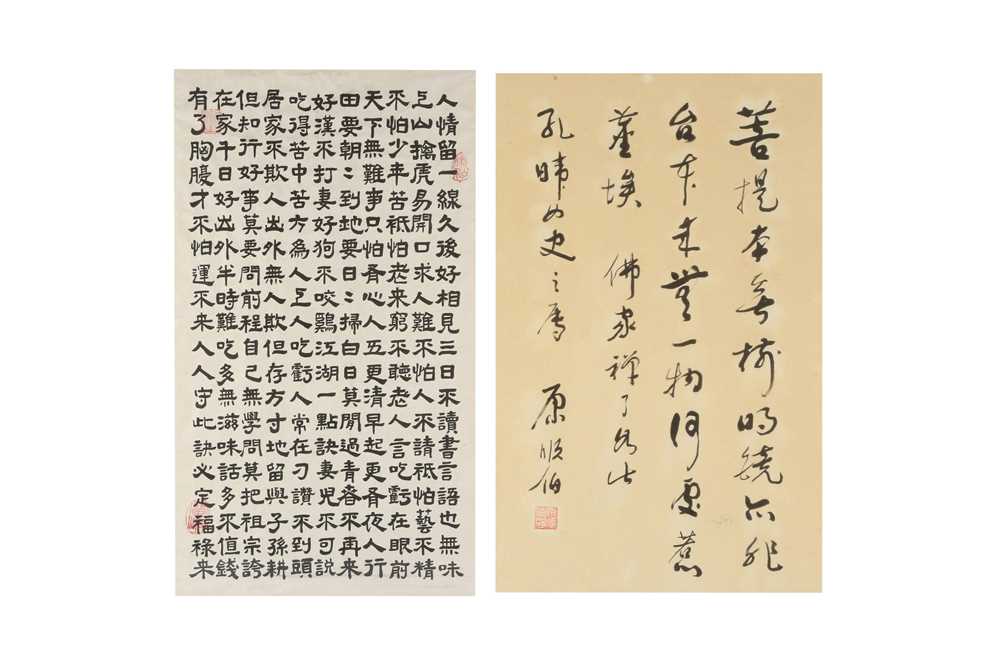 人情留一線久後好相見三日不讀書言語也無味
上山擒虎易開口求人難不怕人不請祗怕藝不精
不怕少年苦祗怕老來窮不聽老人言吃虧在眼前
天下無難事只怕有心人五更清早起更有夜人行
田要朝〻到地要日〻掃白日莫閒過青春不再來
好漢不打妻好狗不咬鷄江湖一點訣妻兒不可說
吃得苦中苦方為人上人吃虧人常在刁讚不到頭
居家不欺人出外無人欺但存方寸地留與子孫耕
但知行好事莫要問前程自己無學問莫把祖宗誇
在家千日好出外半時難吃多無滋味話多不值錢
有了胸腹才不怕運不來人人守此訣必定福祿來
菩提本無樹明鏡亦非
台本來無一物何處惹
塵埃 佛家禪
女史之屬 原順伯